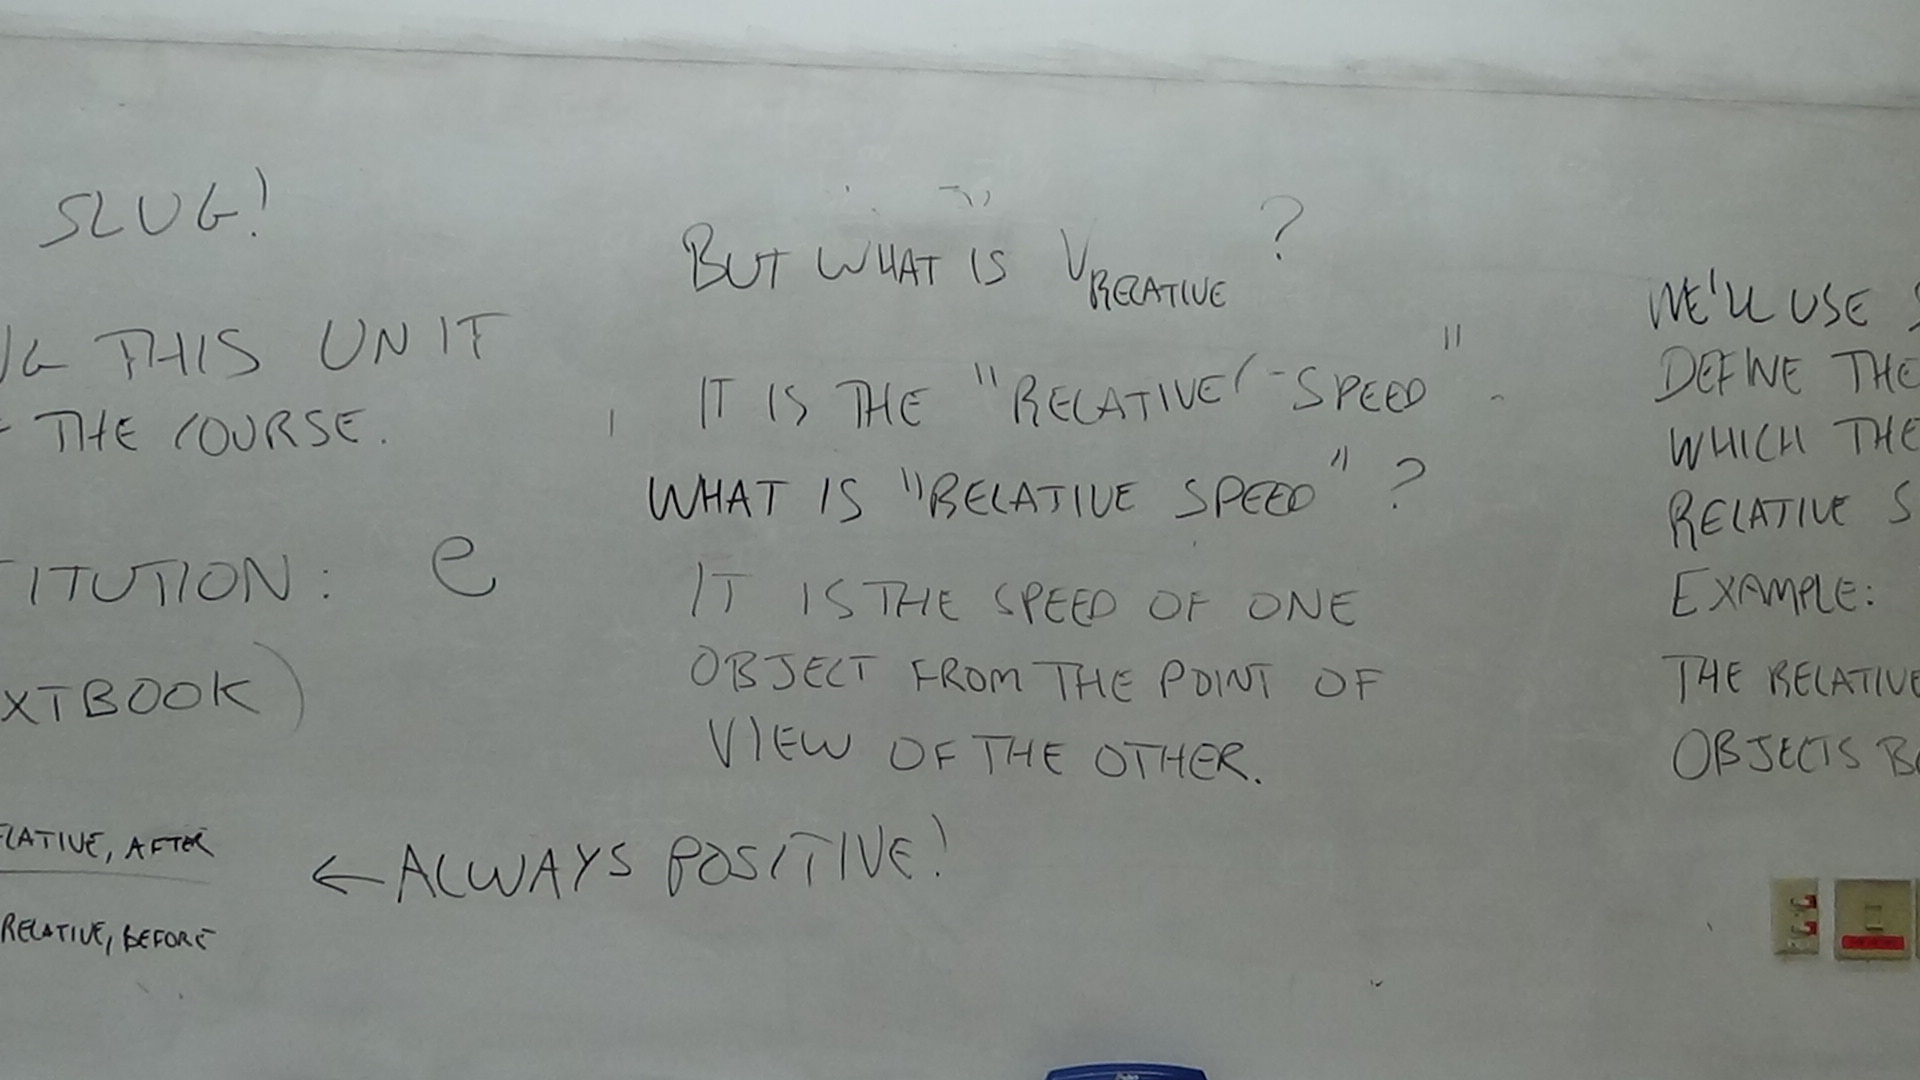 SLUG!
THIS UNIT
THE COURSE.
TITUTION: e
XTBOOK)
ELATIVE, AFTER
RELATIVE, BEFORE
← ALWAYS POSITIVE!
BUT WHAT IS VRELATIVE ?
IT IS THE "RELATIVE SPEED".
WHAT IS "RELATIVE SPEED"?
IT IS THE SPEED OF ONE
OBJECT FROM THE POINT OF
VIEW OF THE OTHER.
WE'LL USE S
DEFINE THE
WHICH THE
RELATIVE S
EXAMPLE:
THE RELATIVE
OBJECTS B